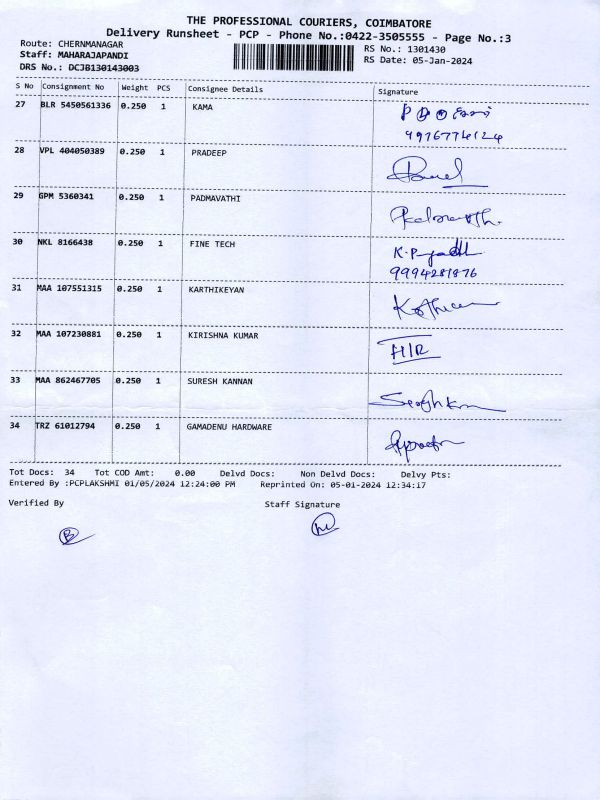 THE PROFESSIONAL COURIERS, COIMBATORE
Delivery Runsheet - PCP - Phone No.:0422-3505555 - Page No.:3
Route: CHERNMANAGAR
Staff: MAHARAJAPANDI
DRS No.: DCJB130143003
RS No.: 1301430
RS Date: 05-Jan-2024
S No Consignment No Weight PCS Consignee Details Signature
27 BLR 5450561336 0.250 1 KAMA
28 VPL 404050389 0.250 1 PRADEEP
29 GPM 5360341 0.250 1 PADMAVATHI
30 NKL 8166438 0.250 1 FINE TECH
9994281876
31 MAA 107551315 0.250 1 KARTHIKEYAN
32 MAA 107230881 0.250 1 KIRISHNA KUMAR
H/R
33 MAA 862467705 0.250 1 SURESH KANNAN
34 TRZ 61012794 0.250 1 GAMADENU HARDWARE
Tot Docs: 34 Tot COD Amt: 0.00 Delvd Docs: Non Delvd Docs: Delvy Pts:
Entered By :PCPLAKSHMI 01/05/2024 12:24:00 PM Reprinted On: 05-01-2024 12:34:17
Verified By Staff Signature